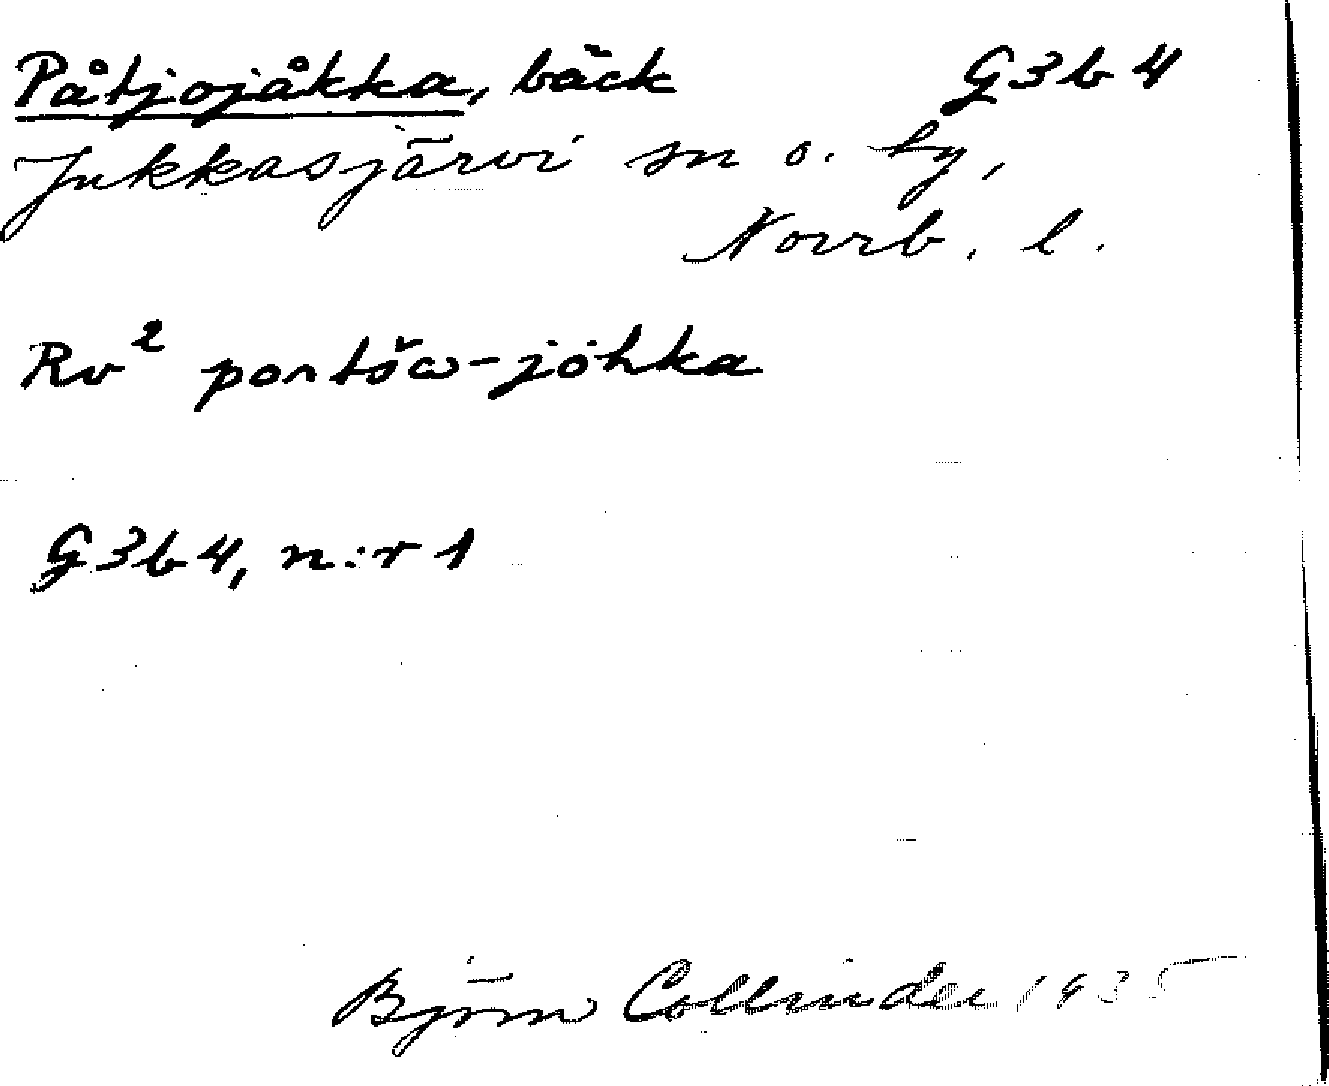 Påtjojåkka, bäck G3b4
Jukkasjärvi sn o. by,
Norrb. l.
Rv² pontšω-jȯhka
G3b4, n:r 1
Björn Collinder 1935